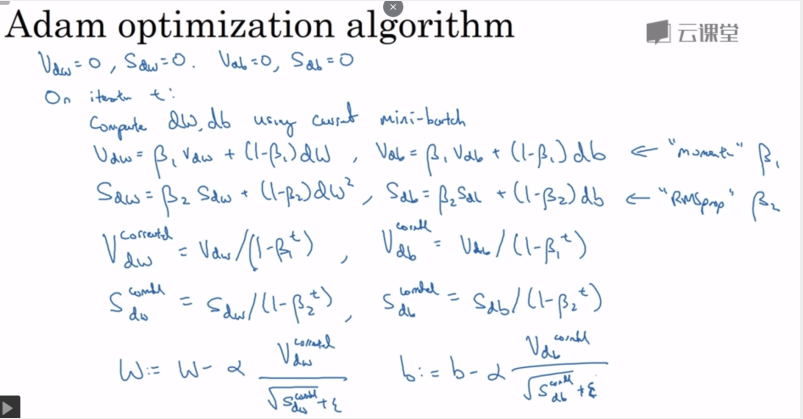 Adam optimization algorithm
云课堂
V_dw = 0, S_dw = 0. V_db = 0, S_db = 0
On iteration t:
Compute dW, db using current mini-batch
V_dw = β₁ V_dw + (1-β₁) dW, V_db = β₁ V_db + (1-β₁) db ← "momentum" β₁
S_dw = β₂ S_dw + (1-β₂) dW², S_db = β₂ S_db + (1-β₂) db ← "RMSprop" β₂
V_dw^corrected = V_dw / (1-β₁^t), V_db^corrected = V_db / (1-β₁^t)
S_dw^corrected = S_dw / (1-β₂^t), S_db^corrected = S_db / (1-β₂^t)
W := W - α V_dw^corrected / (√S_dw^corrected + ε) b := b - α V_db^corrected / (√S_db^corrected + ε)